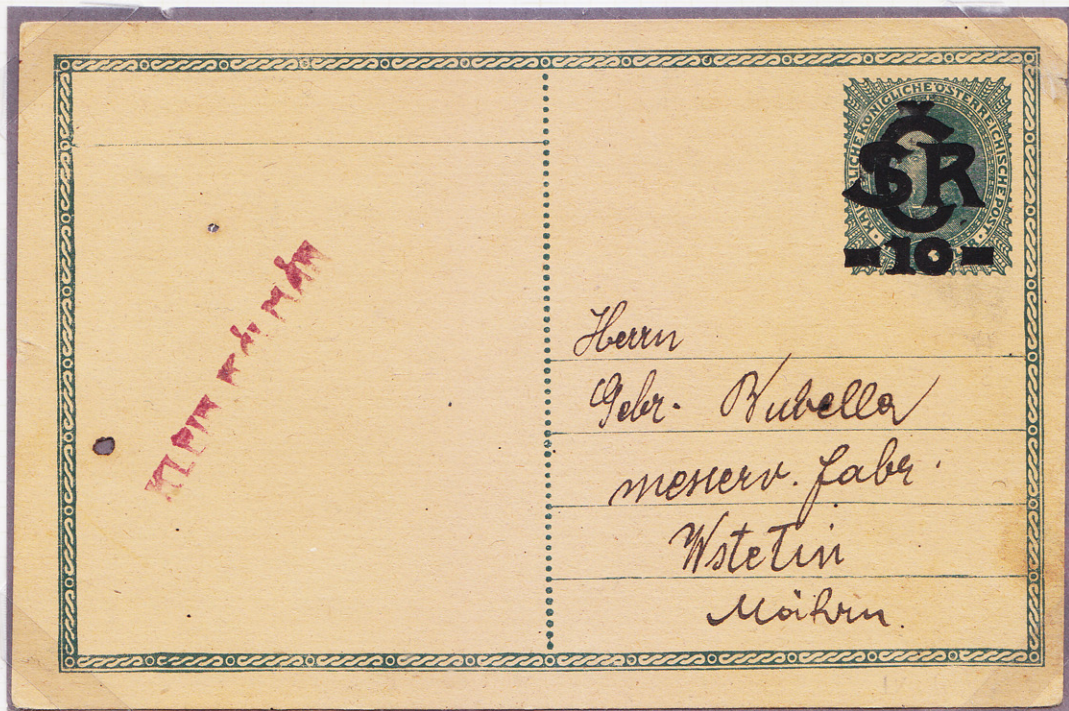 KAISERLICHE KÖNIGLICHE ÖSTERREICHISCHE POST
ČSR
-10-
KLEIN KÁLMÁN
Herrn
Gebr. Bubella
messerv. fabr.
Wstetin
Mähren.